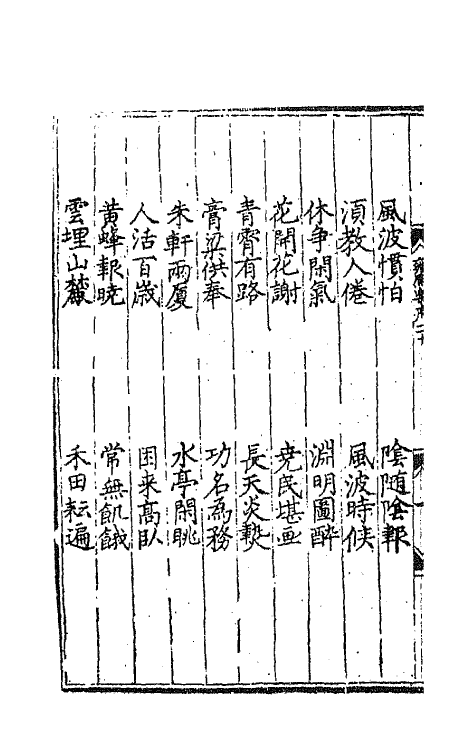 風波慣怕　陰随陰報
湏教人倦　風波時候
休争閑氣　淵明圖醉
花開花謝　尭民堪画
青霄有路　長天炎熱
膏粱供奉　功名為務
朱軒兩厦　水亭閑眺
人活百歲　困来高臥
黄蜂報曉　常無飢餓
雲埋山麓　禾田耘遍